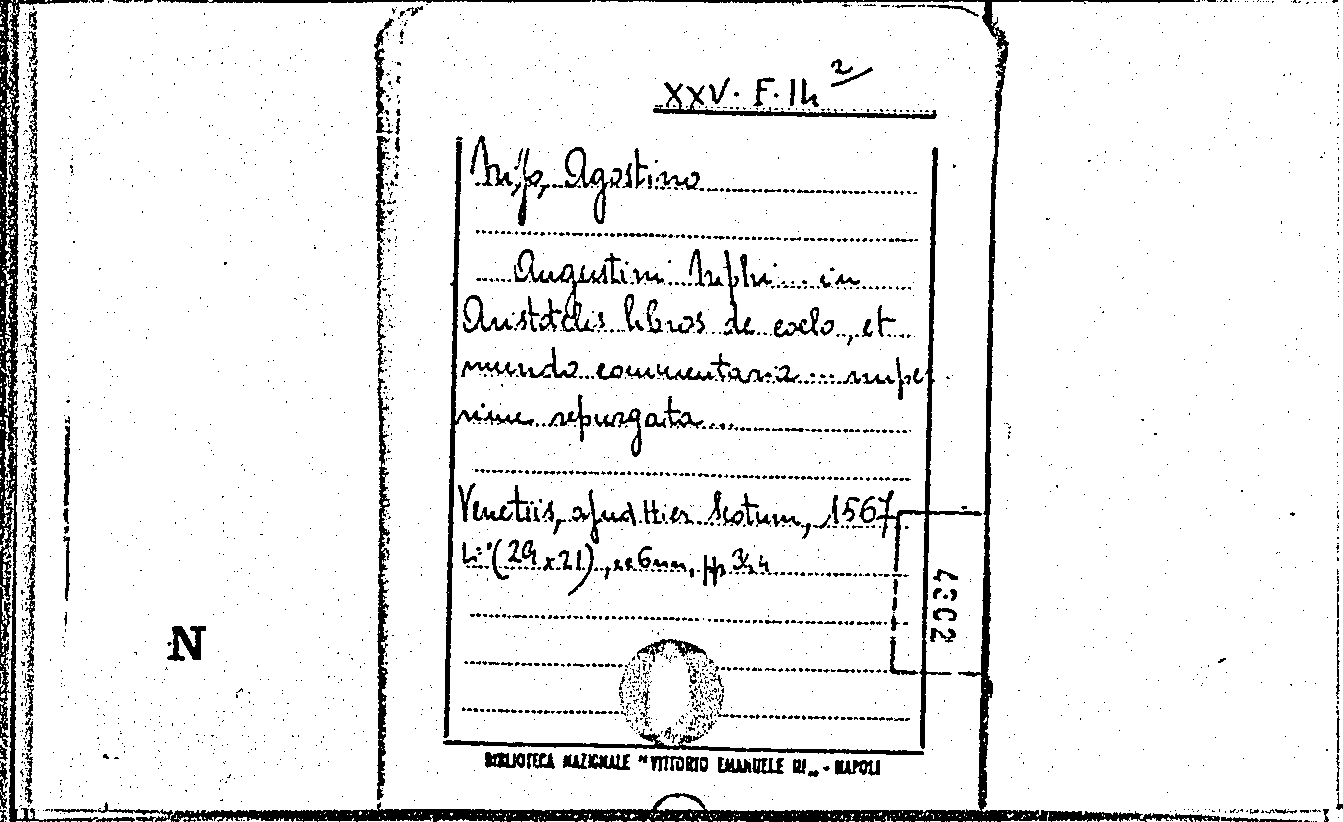 XXV. F. 14 2
Nifo, Agostino
Augustini Niphi ... in
Aristotelis libros de coelo, et
mundo commentaria ... nuper
rime repurgata ...
Venetiis, apud Hier Scotum, 1567
(29 x 21), cc 6 nn, pp
4302
N
BIBLIOTECA NAZIONALE "VITTORIO EMANUELE III„ - NAPOLI